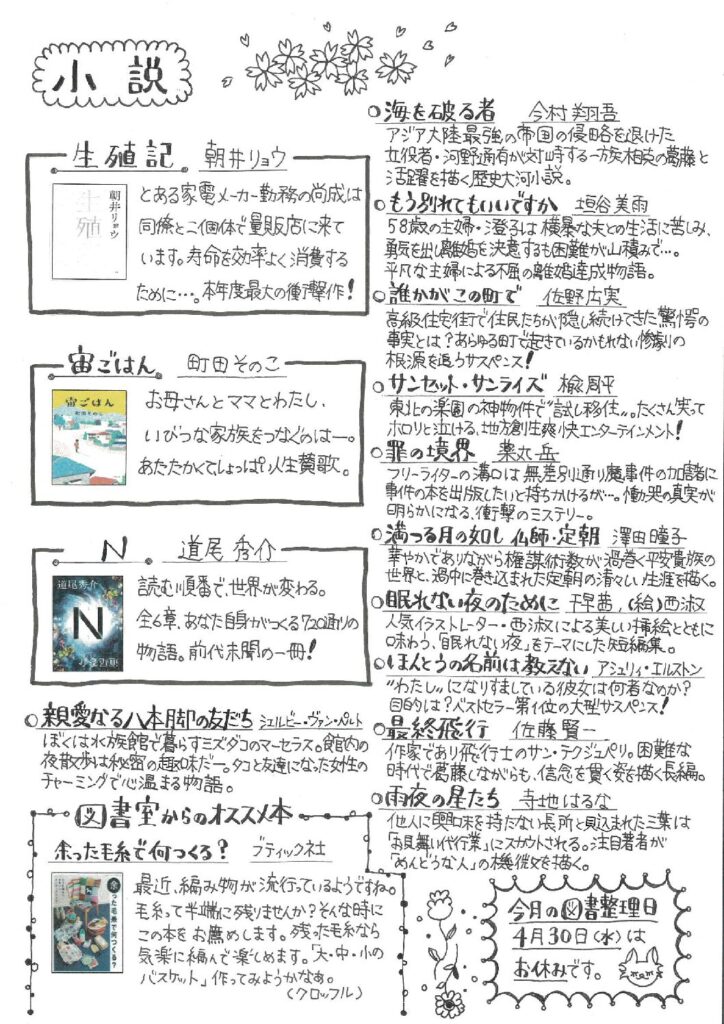 小説
生殖記 朝井リョウ
朝井リョウ
生殖記
とある家電メーカー勤務の尚成は
同僚と二個体で量販店に来て
います。寿命を効率よく消費する
ために…。本年度最大の衝撃作!
宙ごはん 町田そのこ
宙ごはん
町田そのこ
お母さんとママとわたし、
いびつな家族をつなぐのは―。
あたたかくてしょっぱい人生賛歌。
N 道尾秀介
道尾秀介
N
読む順番で、世界が変わる。
全6章、あなた自身がつくる720通りの
物語。前代未聞の一冊!
親愛なる八本脚の友だち シェルビー・ヴァン・ペルト
ぼくは水族館で暮らすミズダコのマーセラス。館内の
夜散歩は秘密の趣味だ―。タコと友達になった女性の
チャーミングで心温まる物語。
図書室からのオススメ本
余った毛糸で何つくる? ブティック社
余った毛糸で何つくる?
最近、編み物が流行っているようですね。
毛糸って半端に残りませんか?そんな時に
この本をお薦めします。残った毛糸なら
気楽に編んで楽しめます。「大・中・小の
バスケット」作ってみようかなぁ。
(クロッフル)
海を破る者 今村翔吾
アジア大陸最強の帝国の侵略を退けた
立役者・河野通有が対峙する一族相克の葛藤と
活躍を描く歴史大河小説。
もう別れてもいいですか 垣谷美雨
58歳の主婦・澄子は横暴な夫との生活に苦しみ、
勇気を出し離婚を決意するも困難が山積みで…。
平凡な主婦による不屈の離婚達成物語。
誰かがこの町で 佐野広実
高級住宅街で住民たちが隠し続けてきた驚愕の
事実とは?あらゆる町で起きているかもしれない惨劇の
根源を追うサスペンス!
サンセット・サンライズ 楡周平
東北の楽園の神物件で“試し移住”。たくさん笑って
ホロリと泣ける、地方創生爽快エンターテインメント!
罪の境界 薬丸岳
フリーライターの溝口は無差別通り魔事件の加害者に
事件の本を出版したいと持ちかけるが…。慟哭の真実が
明らかになる、衝撃のミステリー。
満つる月の如し 仏師・定朝 澤田瞳子
華やかでありながら権謀術数が渦巻く平安貴族の
世界と、渦中に巻き込まれた定朝の清々しい生涯を描く。
眠れない夜のために 千早茜、(絵)西淑
人気イラストレーター・西淑による美しい挿絵とともに
味わう、「眠れない夜」をテーマにした短編集。
ほんとうの名前は教えない アシュリィ・エルストン
“わたし”になりすましている彼女は何者なのか?
目的は?ベストセラー第1位の大型サスペンス!
最終飛行 佐藤賢一
作家であり飛行士のサン・テグジュペリ。困難な
時代で葛藤しながらも、信念を貫く姿を描く長編。
雨夜の星たち 寺地はるな
他人に興味を持たない長所と見込まれた三葉は
「お見舞い代行業」にスカウトされる。注目著者が
「めんどうな人」の機微を描く。
今月の図書整理日
4月30日(水)は
お休みです。